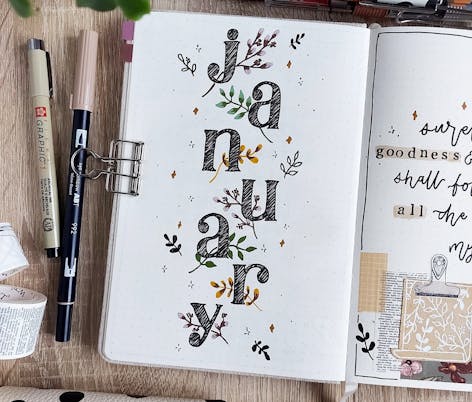 january
goodness
shall fo
all the
my
GRAPHIC